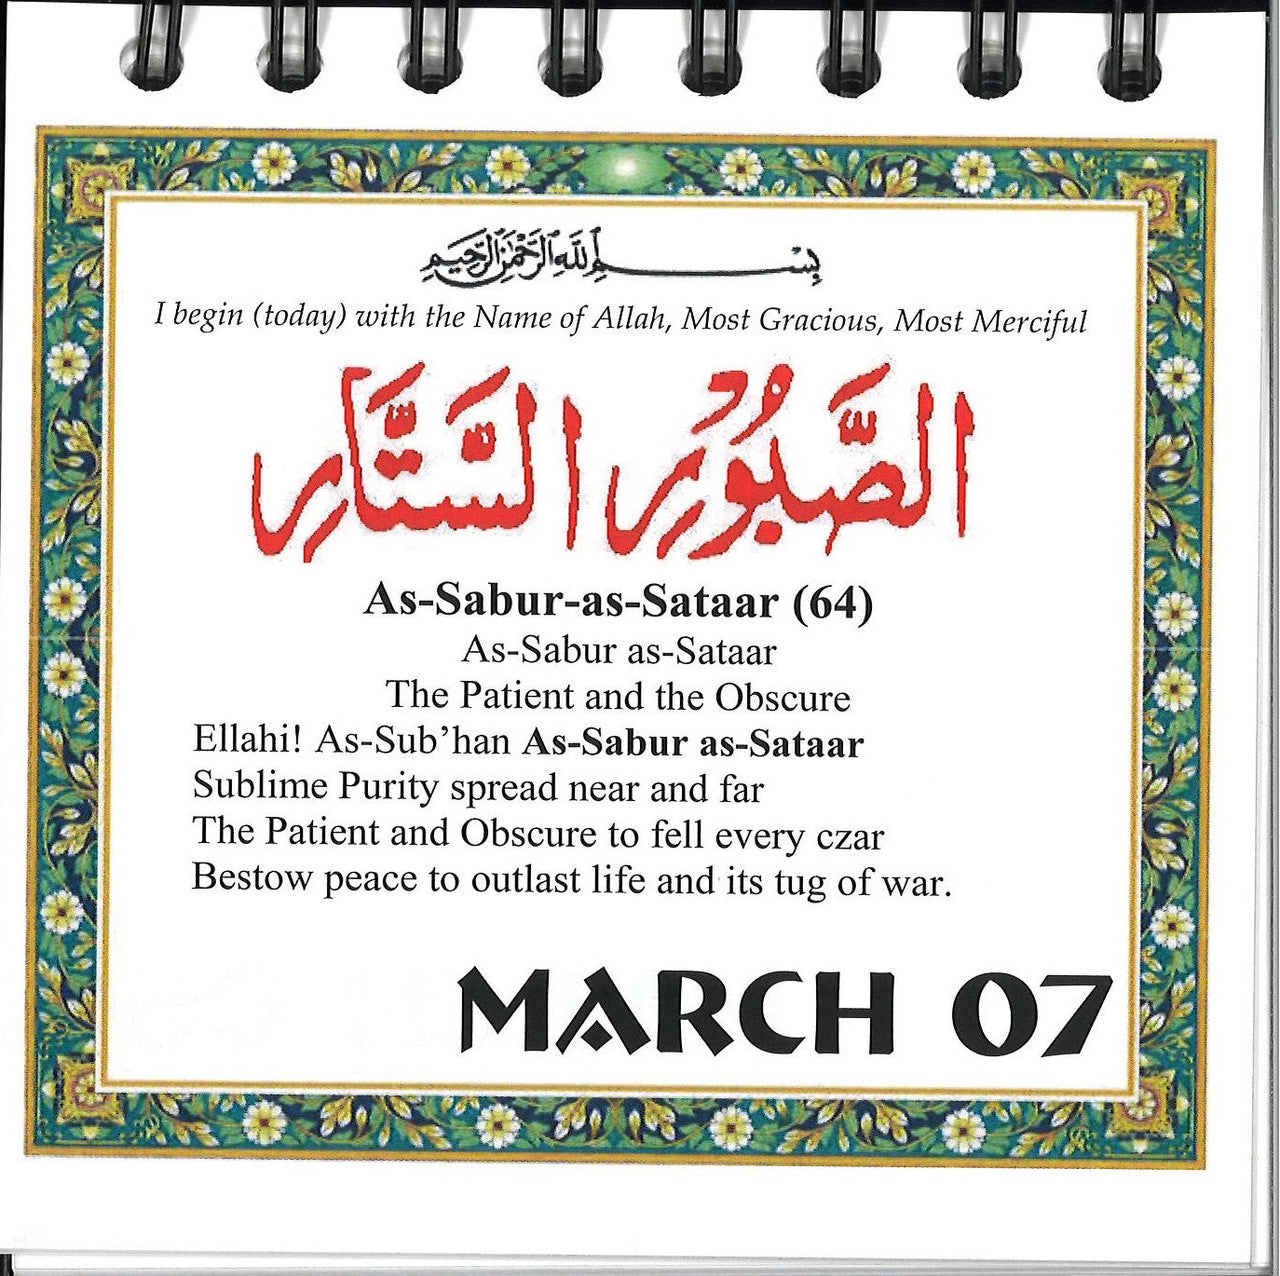 بِسْمِ اللهِ الرَّحْمٰنِ الرَّحِيمِ
I begin (today) with the Name of Allah, Most Gracious, Most Merciful
الصَّبُورِ السَّتَّارِ
As-Sabur-as-Sataar (64)
As-Sabur as-Sataar
The Patient and the Obscure
Ellahi! As-Sub’han As-Sabur as-Sataar
Sublime Purity spread near and far
The Patient and Obscure to fell every czar
Bestow peace to outlast life and its tug of war.
MARCH 07